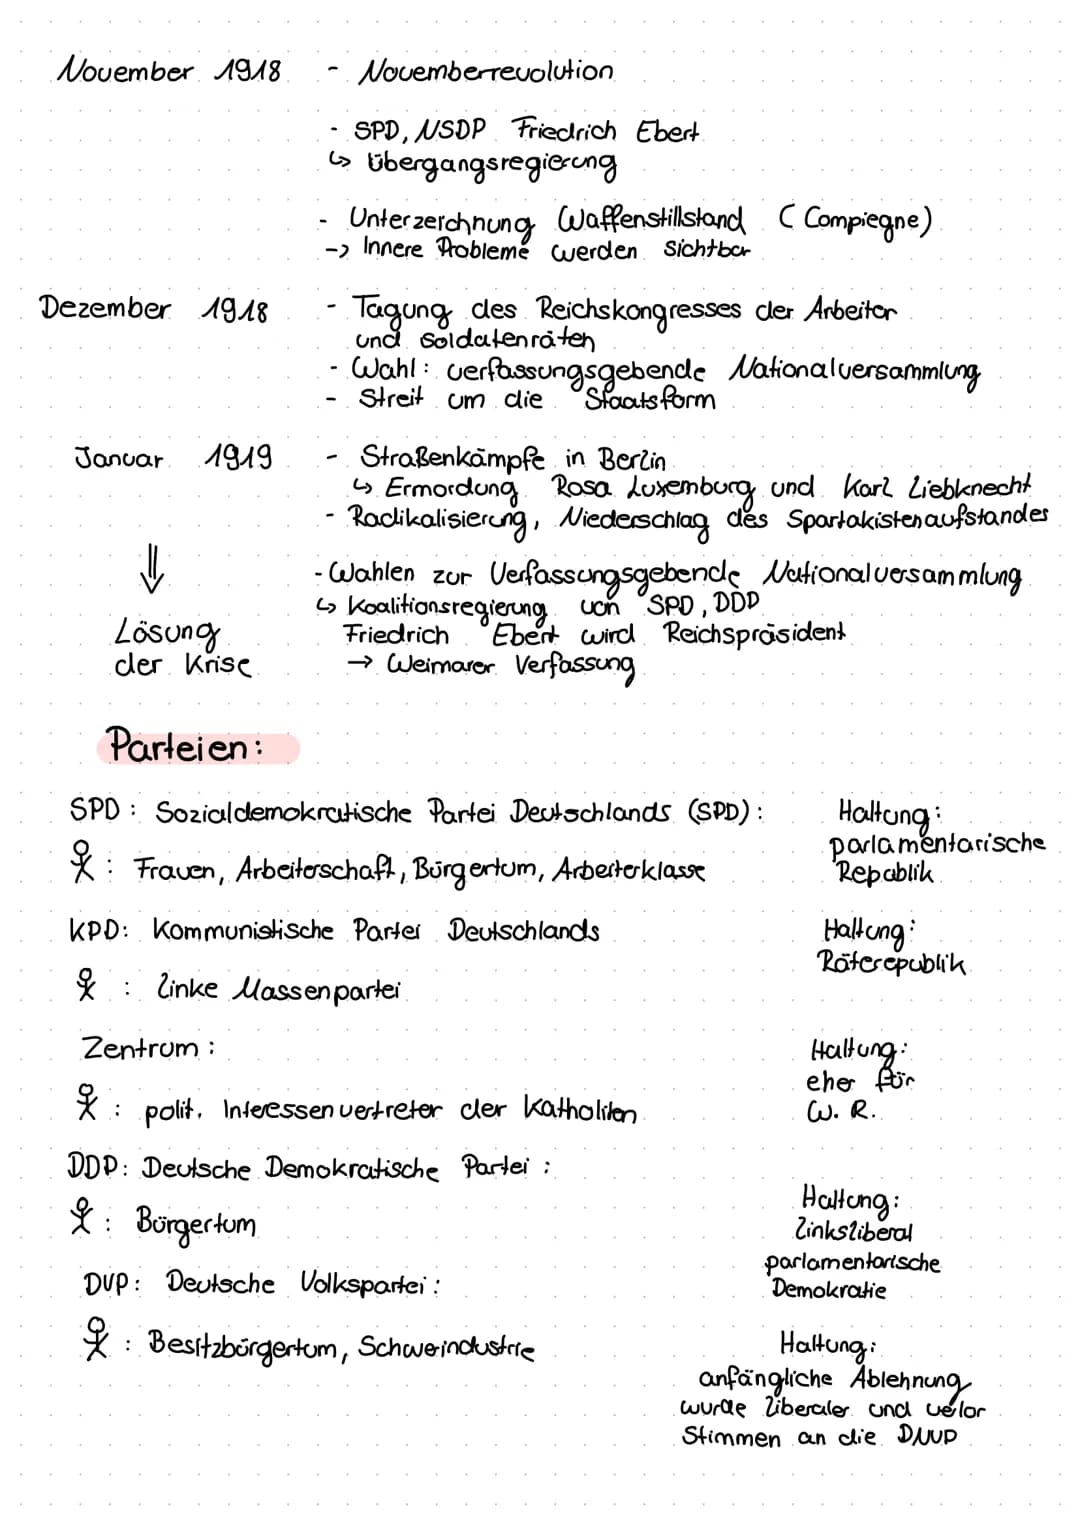 November 1918 - Novemberrevolution
- SPD, NSDP Friedrich Ebert
↳ Übergangsregierung
- Unterzeichnung Waffenstillstand (Compiegne)
-> Innere Probleme werden Sichtbar
Dezember 1918 - Tagung des Reichskongresses der Arbeiter
und Soldatenräten
- Wahl: verfassungsgebende Nationalversammlung
- Streit um die Staatsform
Januar 1919 - Straßenkämpfe in Berlin
↳ Ermordung Rosa Luxemburg und Karl Liebknecht
- Radikalisierung, Niederschlag des Spartakistenaufstandes
⇓
- Wahlen zur Verfassungsgebende Nationalversammlung
↳ Koalitionsregierung von SPD, DDP
Lösung Friedrich Ebert wird Reichspräsident
der Krise → Weimarer Verfassung
Parteien:
SPD: Sozialdemokratische Partei Deutschlands (SPD): Haltung:
parlamentarische
Republik
: Frauen, Arbeiterschaft, Bürgertum, Arbeiterklasse
KPD: Kommunistische Partei Deutschlands Haltung:
Räterepublik
: linke Massenpartei
Zentrum: Haltung:
eher für
W. R.
: polit. Interessenvertreter der Katholiken
DDP: Deutsche Demokratische Partei:
Haltung:
linksliberal
parlamentarische
Demokratie
: Bürgertum
DVP: Deutsche Volkspartei:
: Besitzbürgertum, Schwerindustrie
Haltung:
anfängliche Ablehnung
wurde liberaler und velor
Stimmen an die DNVP